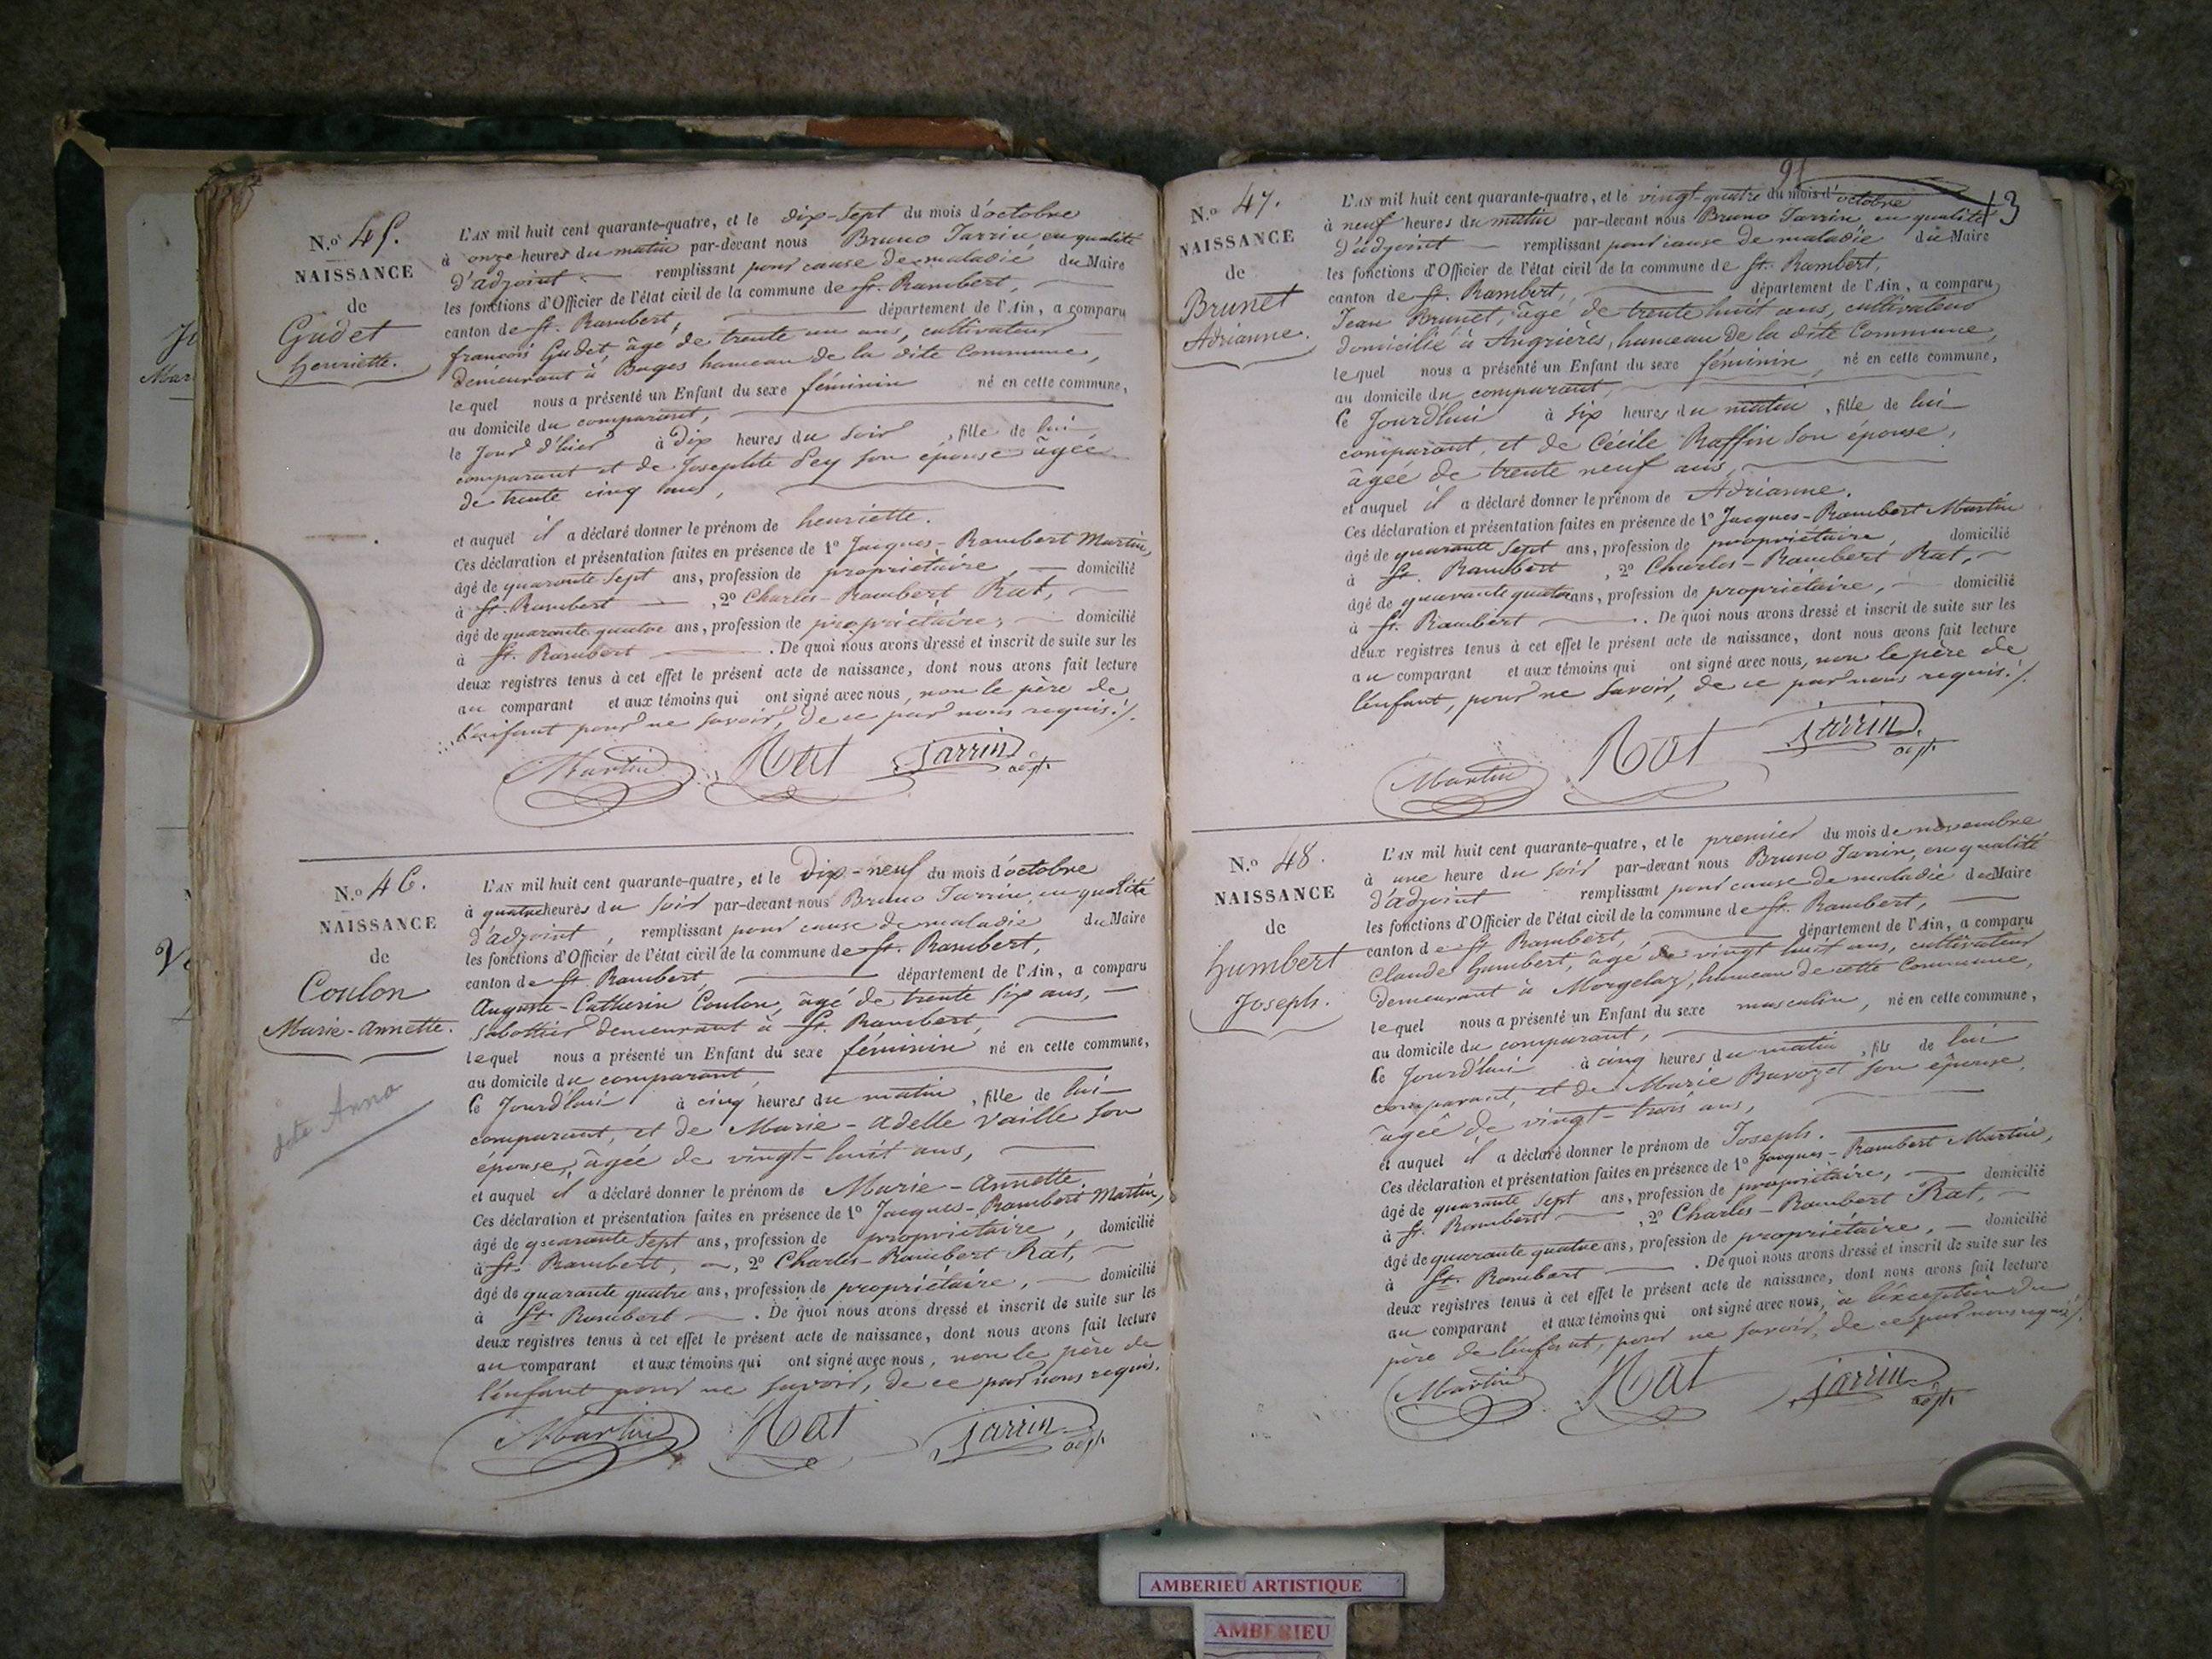 N.º 45.
NAISSANCE
de
Gudet
henriette.
L'AN mil huit cent quarante-quatre, et le dix-sept du mois d'octobre
à onze heures du matin par-devant nous Bruno Jarrin en qualité
d'adjoint remplissant pour cause de maladie du Maire
les fonctions d'Officier de l'état civil de la commune de St. Rambert,
canton de St. Rambert, département de l'Ain, a comparu
françois Gudet, âgé de trente un ans, cultivateur
demeurant à Buges hameau de la dite Commune,
lequel nous a présenté un Enfant du sexe féminin né en cette commune,
au domicile du comparant,
le Jour d'hier à Dix heures du soir, fille de lui
comparant et de Josephte Pey son épouse âgée
de trente cinq ans,
et auquel il a déclaré donner le prénom de henriette.
Ces déclaration et présentation faites en présence de 1º Jacques-Rambert Martin,
âgé de quarante sept ans, profession de propriétaire, domicilié
à St. Rambert, 2º Charles-Rambert Rat,
âgé de quarante quatre ans, profession de propriétaire, domicilié
à St. Rambert. De quoi nous avons dressé et inscrit de suite sur les
deux registres tenus à cet effet le présent acte de naissance, dont nous avons fait lecture
au comparant et aux témoins qui ont signé avec nous, non le père de
l'enfant pour ne savoir de ce par nous requis./.
Martin Rat Jarrin adjt.
N.º 46.
NAISSANCE
de
Coulon
Marie-annette.
dite Anna
L'AN mil huit cent quarante-quatre, et le Dix-neuf du mois d'octobre
à quatre heures du soir par-devant nous Bruno Jarrin, en qualité
d'adjoint, remplissant pour cause de maladie du Maire
les fonctions d'Officier de l'état civil de la commune de St. Rambert,
canton de St. Rambert, département de l'Ain, a comparu
Auguste-Catherin Coulon, âgé de trente six ans,
Sabottier demeurant à St. Rambert,
lequel nous a présenté un Enfant du sexe féminin né en cette commune,
au domicile du comparant,
le Jourd'hui à cinq heures du matin, fille de lui
comparant, et de Marie-adelle Vaille son
épouse, âgée de vingt-huit ans,
et auquel il a déclaré donner le prénom de Marie-Annette.
Ces déclaration et présentation faites en présence de 1º Jacques-Rambert Martin,
âgé de quarante sept ans, profession de propriétaire, domicilié
à St. Rambert, 2º Charles-Rambert Rat,
âgé de quarante quatre ans, profession de propriétaire, domicilié
à St. Rambert. De quoi nous avons dressé et inscrit de suite sur les
deux registres tenus à cet effet le présent acte de naissance, dont nous avons fait lecture
au comparant et aux témoins qui ont signé avec nous, non le père de
l'enfant pour ne savoir, de ce par nous requis.
Martin Rat Jarrin adjt.
91
43
N.º 47.
NAISSANCE
de
Brunet
Adrianne.
L'AN mil huit cent quarante-quatre, et le vingt-quatre du mois d'octobre
à neuf heures du matin par-devant nous Bruno Jarrin, en qualité
d'adjoint remplissant pour cause de maladie du Maire
les fonctions d'Officier de l'état civil de la commune de St. Rambert,
canton de St. Rambert, département de l'Ain, a comparu
Jean Brunet, âgé de trente huit ans, cultivateur
domicilié à Angrières, hameau de la dite Commune,
lequel nous a présenté un Enfant du sexe féminin, né en cette commune,
au domicile du comparant,
le Jourd'hui à six heures du matin, fille de lui
comparant, et de Cécile Raffin son épouse,
âgée de trente neuf ans,
et auquel il a déclaré donner le prénom de Adrianne.
Ces déclaration et présentation faites en présence de 1º Jacques-Rambert Martin
âgé de quarante sept ans, profession de propriétaire, domicilié
à St. Rambert, 2º Charles-Rambert Rat,
âgé de quarante quatre ans, profession de propriétaire, domicilié
à St. Rambert. De quoi nous avons dressé et inscrit de suite sur les
deux registres tenus à cet effet le présent acte de naissance, dont nous avons fait lecture
au comparant et aux témoins qui ont signé avec nous, non le père de
l'enfant, pour ne savoir, de ce par nous requis./.
Martin Rat Jarrin adjt.
N.º 48.
NAISSANCE
de
humbert
Joseph.
L'AN mil huit cent quarante-quatre, et le premier du mois de novembre
à une heure du soir par-devant nous Bruno Jarrin, en qualité
d'adjoint remplissant pour cause de maladie du Maire
les fonctions d'Officier de l'état civil de la commune de St. Rambert,
canton de St Rambert, département de l'Ain, a comparu
Claude humbert, âgé de vingt huit ans, cultivateur
demeurant à Morgelaz, hameau de cette Commune,
lequel nous a présenté un Enfant du sexe masculin, né en cette commune,
au domicile du comparant,
le Jourd'hui à cinq heures du matin, fils de lui
comparant, et de Marie Bavozet son épouse,
âgée de vingt-trois ans,
et auquel il a déclaré donner le prénom de Joseph.
Ces déclaration et présentation faites en présence de 1º Jacques-Rambert Martin,
âgé de quarante sept ans, profession de propriétaire, domicilié
à St. Rambert, 2º Charles-Rambert Rat,
âgé de quarante quatre ans, profession de propriétaire, domicilié
à St. Rambert. De quoi nous avons dressé et inscrit de suite sur les
deux registres tenus à cet effet le présent acte de naissance, dont nous avons fait lecture
au comparant et aux témoins qui ont signé avec nous, à l'exception du
père de l'enfant, pour ne savoir, de ce par nous requis./.
Martin Rat Jarrin adjt.
AMBERIEU ARTISTIQUE
AMBERIEU